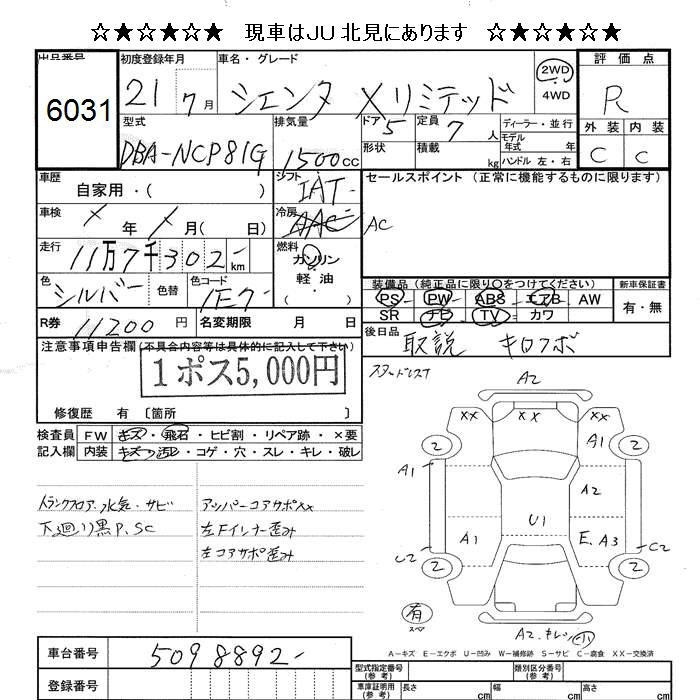 ☆★☆★☆★ 現車はJU北見にあります ☆★☆★☆★
出品番号 初度登録年月 車名・グレード 評価点
6031 21 7月 シエンタ Xリミテッド 2WD 4WD R
型式 排気量 ドア 5 定員 7 人 ディーラー・並行 外装 内装
DBA-NCP81G 1500cc 形状 積載 kg モデル年式 年 ハンドル 左・右 C C
車歴 シフト セールスポイント (正常に機能するものに限ります)
自家用・( ) IAT
車検 年 月( 日) 冷房 AAC AC
走行 11万7千302 km 燃料 ガソリン 軽油
色 シルバー 色替 色コード 1E7 装備品(純正品に限り○をつけてください) 新車保証書
PS PW ABS エアB AW 有・無
SR ナビ TV カワ
R券 11200円 名変期限 月 日 後日品 取説 キロクボ
注意事項申告欄(不具合内容等は具体的に記入して下さい)
1ポス5,000円
スタッドレス
修復歴 有 〔箇所 〕
検査員 FW キズ・飛石・ヒビ割・リペア跡・×要
記入欄 内装 キズ・汚レ・コゲ・穴・スレ・キレ・破レ
トランクフロア、水気・サビ アッパーコアサポXX
下廻り黒P、SC 左Fインナー歪み
左コアサポ歪み
A2
XX XX XX
2 A1 2
A1 A2
U1
A1 E、A3
C2 C2
2 2
有 スペア
A2、キレ 小
A-キズ E-エクボ U-凹み W-補修跡 S-サビ C-腐食 XX-交換済
車台番号 5098892-
型式指定番号(参考) 類別区分番号(参考)
登録番号 車庫証明用(参考) 長さ cm 幅 cm 高さ cm